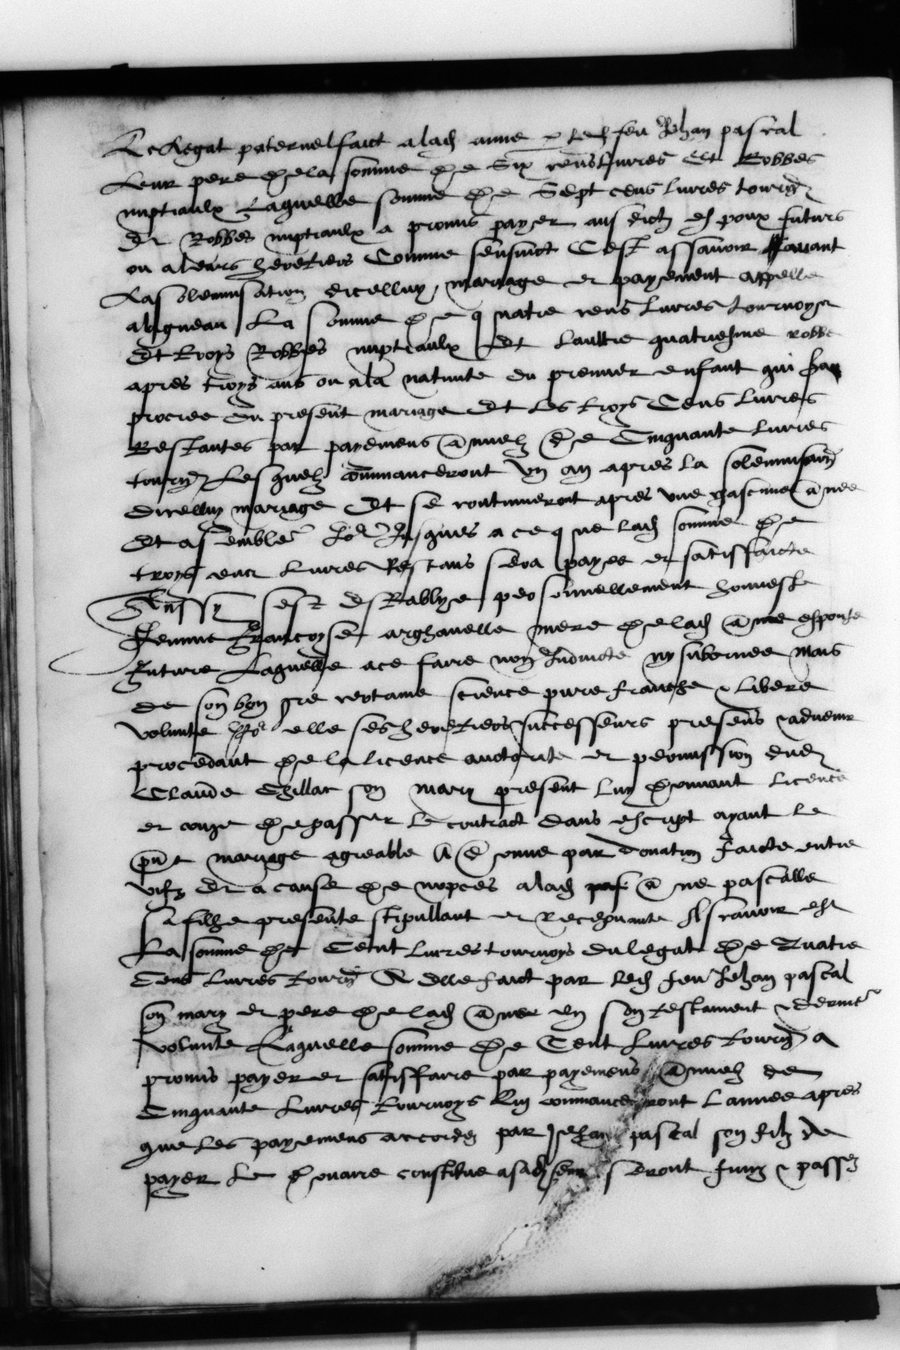 Le legat paternel faict a lad anne p led feu Jehan pascal
leur pere de la somme de Six cens livres Et Robbes
nuptiaulx Laquelle somme de Sept cens livres tourn
Et Robbes nuptiaulx a promis payer aus dictz espoux futurs
ou a leurs heretiers Comme sensuict Cest assavoir avant
La solemnisation dicelluy mariage et payement appelle
La somme de quatre cens livres tournoys
Et troys Robbes nuptiaulx Et laultre quatriesme robbe
apres troys ans ou a la nativite du premier enfant qui sera
procree du present mariage Et les troys Cens livres
Restantes par payemens annuelz de Cinquante livres
tourn Lesquelz commanceront ung an apres la solemnisation
dicelluy mariage Et se continueront apres une chascune annee
Et assemble Jusques a ce que lad somme de
troys cens livres Restans sera payee et satisffaicte
Aussy sest establye personnellement honneste
femme Francoyse arghanelle mere de lad anne espouse
future Laquelle a ce faire non Induicte ny subornee mais
de son bon gre certaine science pure franche & libere
volunte Po elle ses heretiers successeurs presens & advenir
procedant de la licence auctorite et permission dud
Claude son mary present luy donnant licence
et conge de passer le contract dans escript ayant le
pnt mariage agreable A donne par donation faicte entre
vifz Et a cause de nopces a lad anne pascalle
sa filhe presente stipullant et Recepvante Assavoir est
La somme de Cent livres tournoys du legat de Quatre
Cens livres tourn A elle faict par led feu Jehan pascal
son mary et pere de lad anne en son testament & derniere
volunte Laquelle somme de Cent livres tourn a
promis payer et satisffaire par payemens annuelz de
Cinquante livres tournoys Qui commanceront lannee apres
que les payemens accordes par Jehan pascal son filz de
payer le douaire constitue a sad seur seront finiz & passes